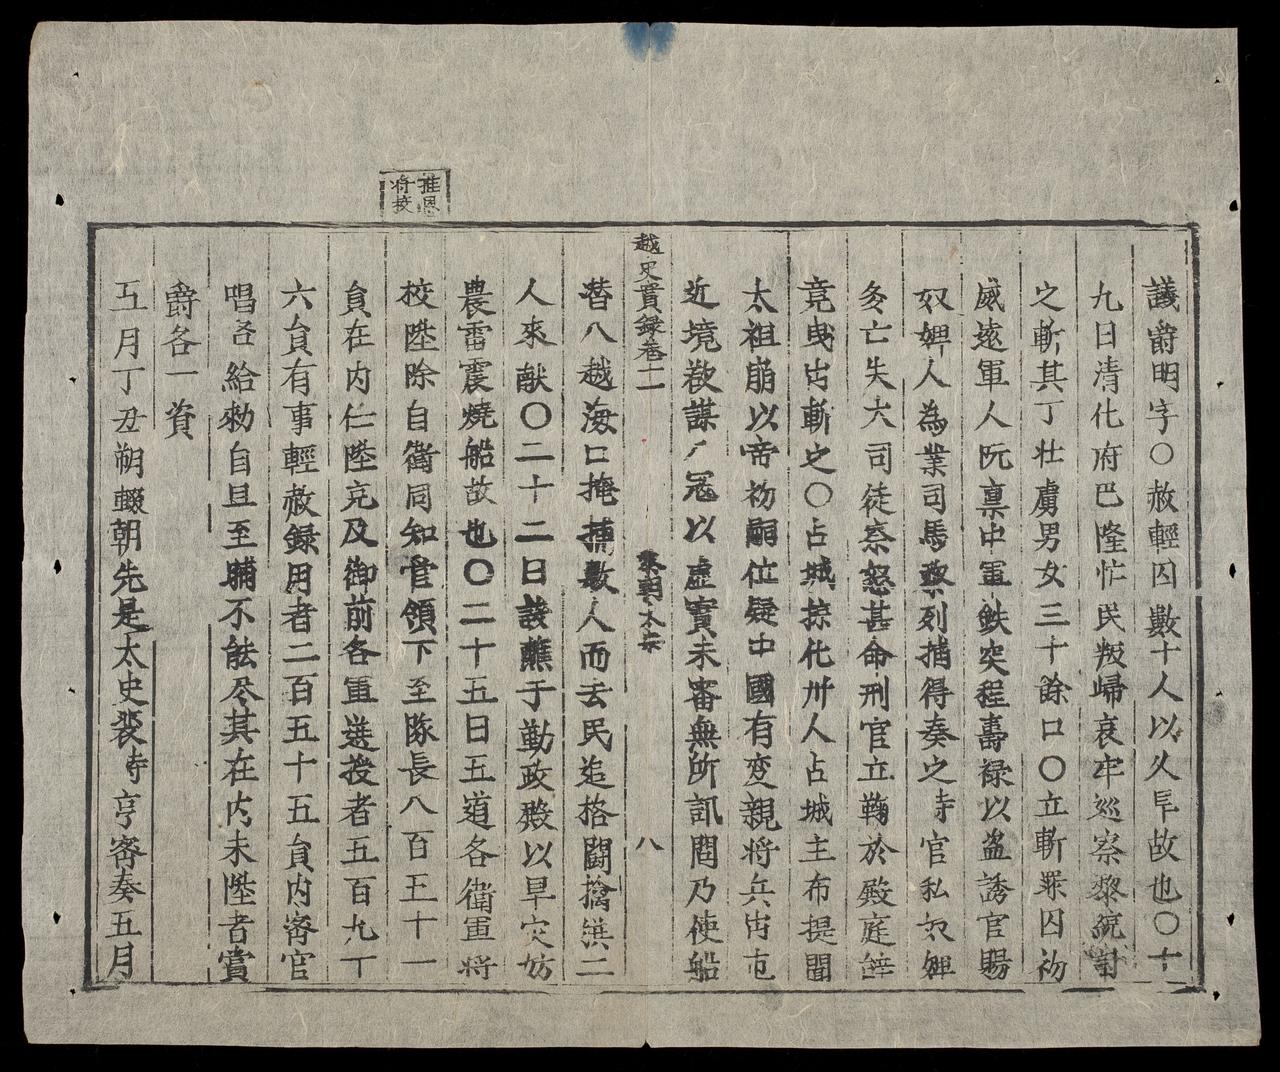 議爵明字〇赦輕囚數十人以久旱故也〇十
九日清化府巴隆忙民叛歸哀牢巡察黎統討
之斬其丁壯虜男女三十餘口〇立斬罪囚初
威遠軍人阮稟中軍鉄突程壽禄以盗誘官賜
奴婢人為業司馬黎列捕得奏之寺官私奴婢
多亡失大司徒察怒甚命刑官立鞫於殿庭辞
竟曳出斬之〇占城掠化州人占城主布提聞
太祖崩以帝初嗣位疑中國有変親将兵出屯
近境欲謀入冦以虚實未審無所訊問乃使船
替入越海口掩捕數人而去民追格闘擒漢二
人來献〇二十二日設醮于勤政殿以旱灾妨
農雷震燒船故也〇二十五日五道各衛軍将
校陞除自衛同知官領下至隊長八百五十一
員在内仁陞充及御前各軍選授者五百九丁
六員有事輕赦録用者二百五十五員内密官
唱名給勑自旦至晡不能尽其在内未陞者賞
爵各一資
五月丁丑朔輟朝先是太史裴時亨密奏五月
越史實録巻十一
黎朝太宗
八
推恩
将校